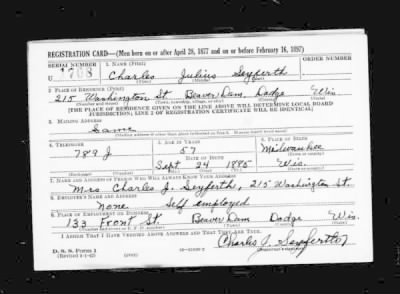 REGISTRATION CARD—(Men born on or after April 28, 1877 and on or before February 16, 1897)
SERIAL NUMBER 1. NAME (Print) ORDER NUMBER
U 1708 Charles Julius Seyferth
(First) (Middle) (Last)
2. PLACE OF RESIDENCE (Print)
215 Washington St Beaver Dam, Dodge Wis.
(Number and street) (Town, township, village, or city) (County) (State)
[THE PLACE OF RESIDENCE GIVEN ON THE LINE ABOVE WILL DETERMINE LOCAL BOARD
JURISDICTION; LINE 2 OF REGISTRATION CERTIFICATE WILL BE IDENTICAL]
3. MAILING ADDRESS
Same
[Mailing address if other than place indicated on line 2. If same insert word same]
4. TELEPHONE 5. AGE IN YEARS 6. PLACE OF BIRTH
789 J 57 Milwaukee
DATE OF BIRTH (Town or county)
Sept. 24 1885 Wis.
(Exchange) (Number) (Mo.) (Day) (Yr.) (State or country)
7. NAME AND ADDRESS OF PERSON WHO WILL ALWAYS KNOW YOUR ADDRESS
Mrs Charles J. Seyferth, 215 Washington St.
8. EMPLOYER'S NAME AND ADDRESS
None Self employed
9. PLACE OF EMPLOYMENT OR BUSINESS
133 Front St. Beaver Dam Dodge Wis.
(Number and street or R. F. D. number) (Town) (County) (State)
I AFFIRM THAT I HAVE VERIFIED ABOVE ANSWERS AND THAT THEY ARE TRUE.
D. S. S. Form 1
(Revised 4-1-42) (over) Charles J. Seyferth
(Registrant's signature)